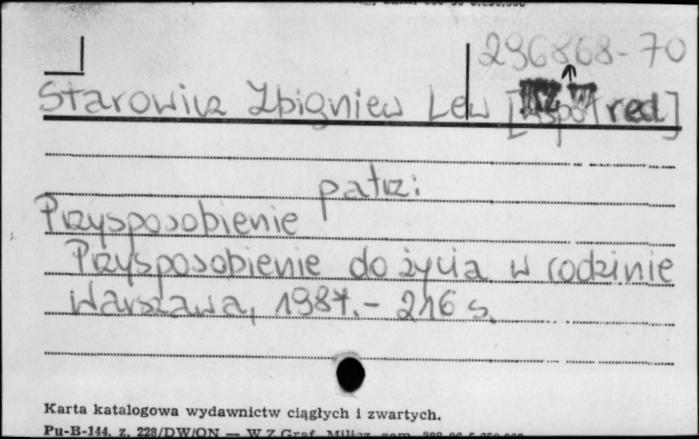 236868-70
Starowicz Zbigniew Lew [współ red]
patrz:
Przysposobienie
Przysposobienie do życia w rodzinie
Warszawa, 1987.- 216 s.
Karta katalogowa wydawnictw ciągłych i zwartych.
Pu-B-144, z. 228/DW/ON — W.Z.Graf. Milicz, zam.